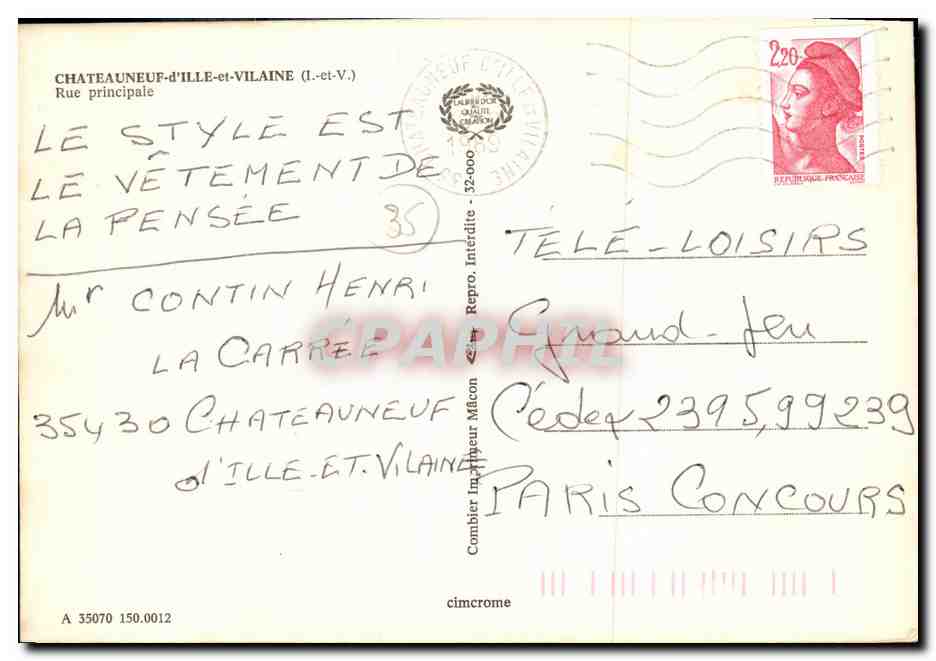 CHATEAUNEUF-d'ILLE-et-VILAINE (I.-et-V.)
Rue principale
LE STYLE EST
LE VÊTEMENT DE
LA PENSÉE
35
Mr CONTIN HENRI
LA CARRÉE
35430 CHATEAUNEUF
d'ILLE-ET-VILAINE
LAURIER D'OR
QUALITÉ
CRÉATION
CHATEAUNEUF D'ILLE ET VILAINE
Combier Imprimeur Mâcon
Repro. Interdite - 32-000
CPAPHIL
2,20
POSTES
REPUBLIQUE FRANÇAISE
TÉLÉ-LOISIRS
Grand-Jeu
Cédex 2395, 99239
PARIS CONCOURS
A 35070 150.0012
cimcrome